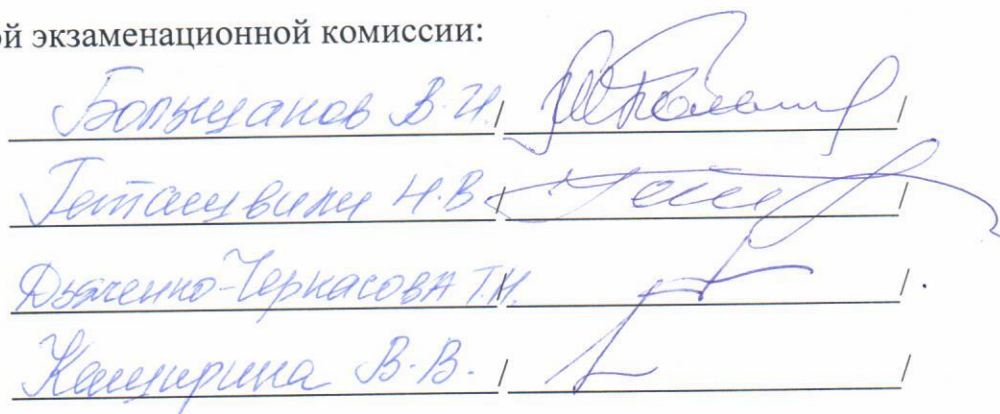 ой экзаменационной комиссии:
Большанов В.И. / /
Геташвили Н.В. / /
Дьяченко-Черкасова Т.Н. / / .
Каширина В.В. / /